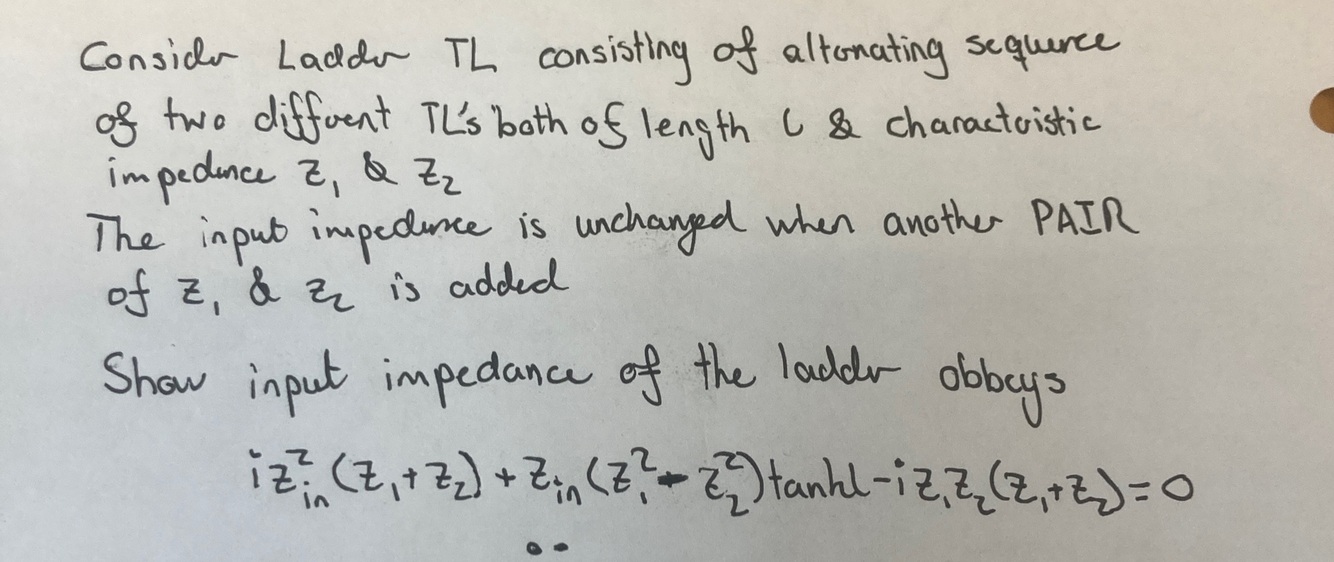 Consider Ladder TL consisting of alternating sequence
of two different TL's both of length l & characteristic
impedence Z₁ & Z₂
The input impedence is unchanged when another PAIR
of Z₁ & Z₂ is added
Show input impedance of the ladder obbeys
iZ²ᵢₙ(Z₁+Z₂)+Zᵢₙ(Z₁²-Z₂²)tankl-iZ₁Z₂(Z₁+Z₂)=0